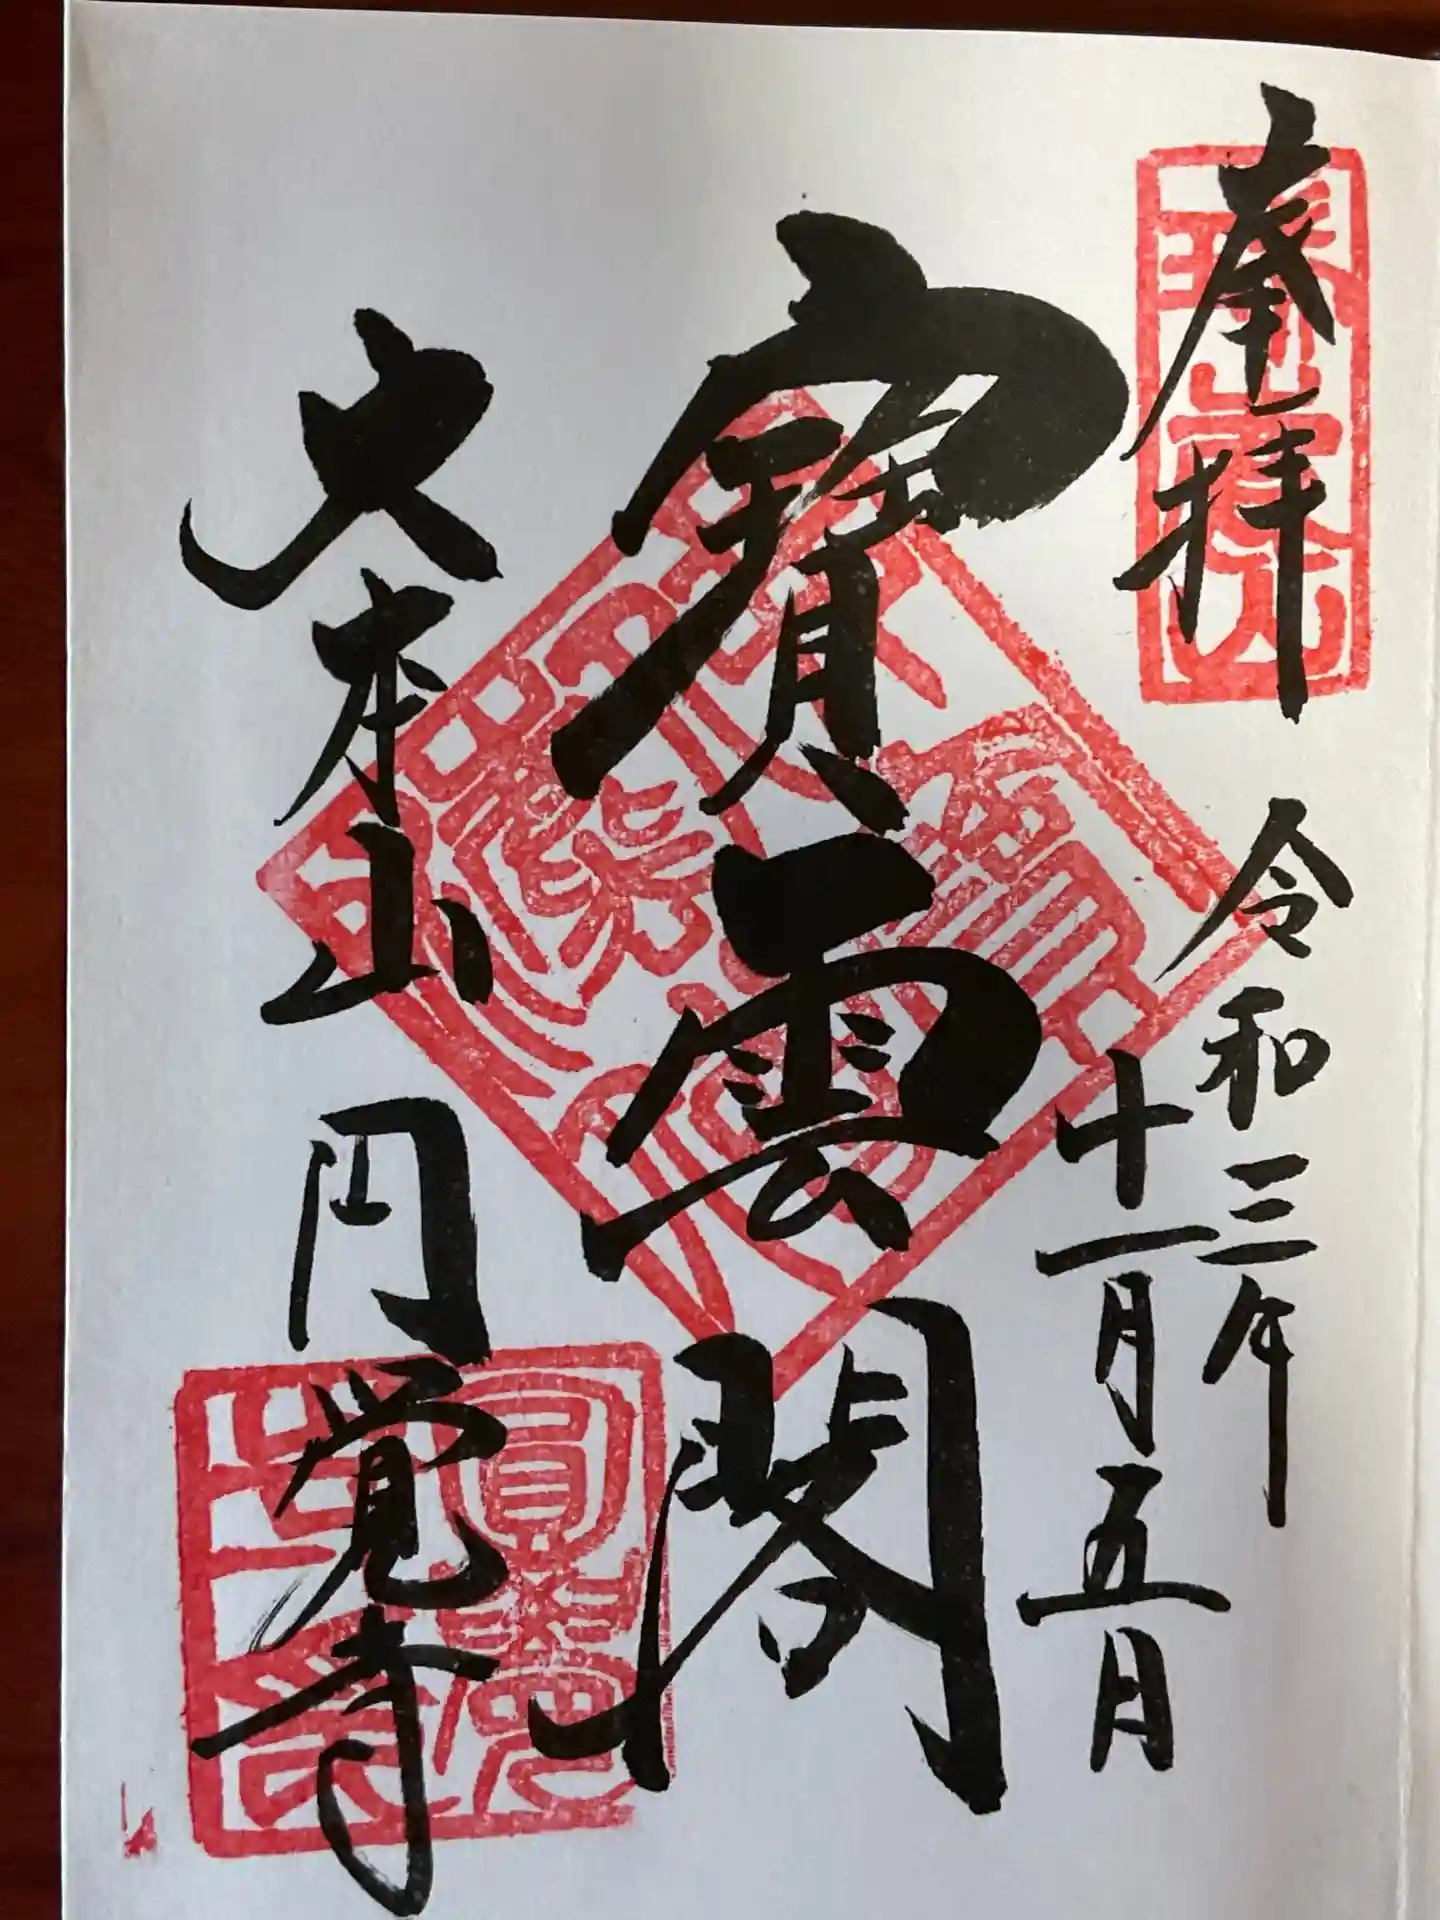 奉拝
令和三年
十一月五月
寳雲閣
大本山円覚寺